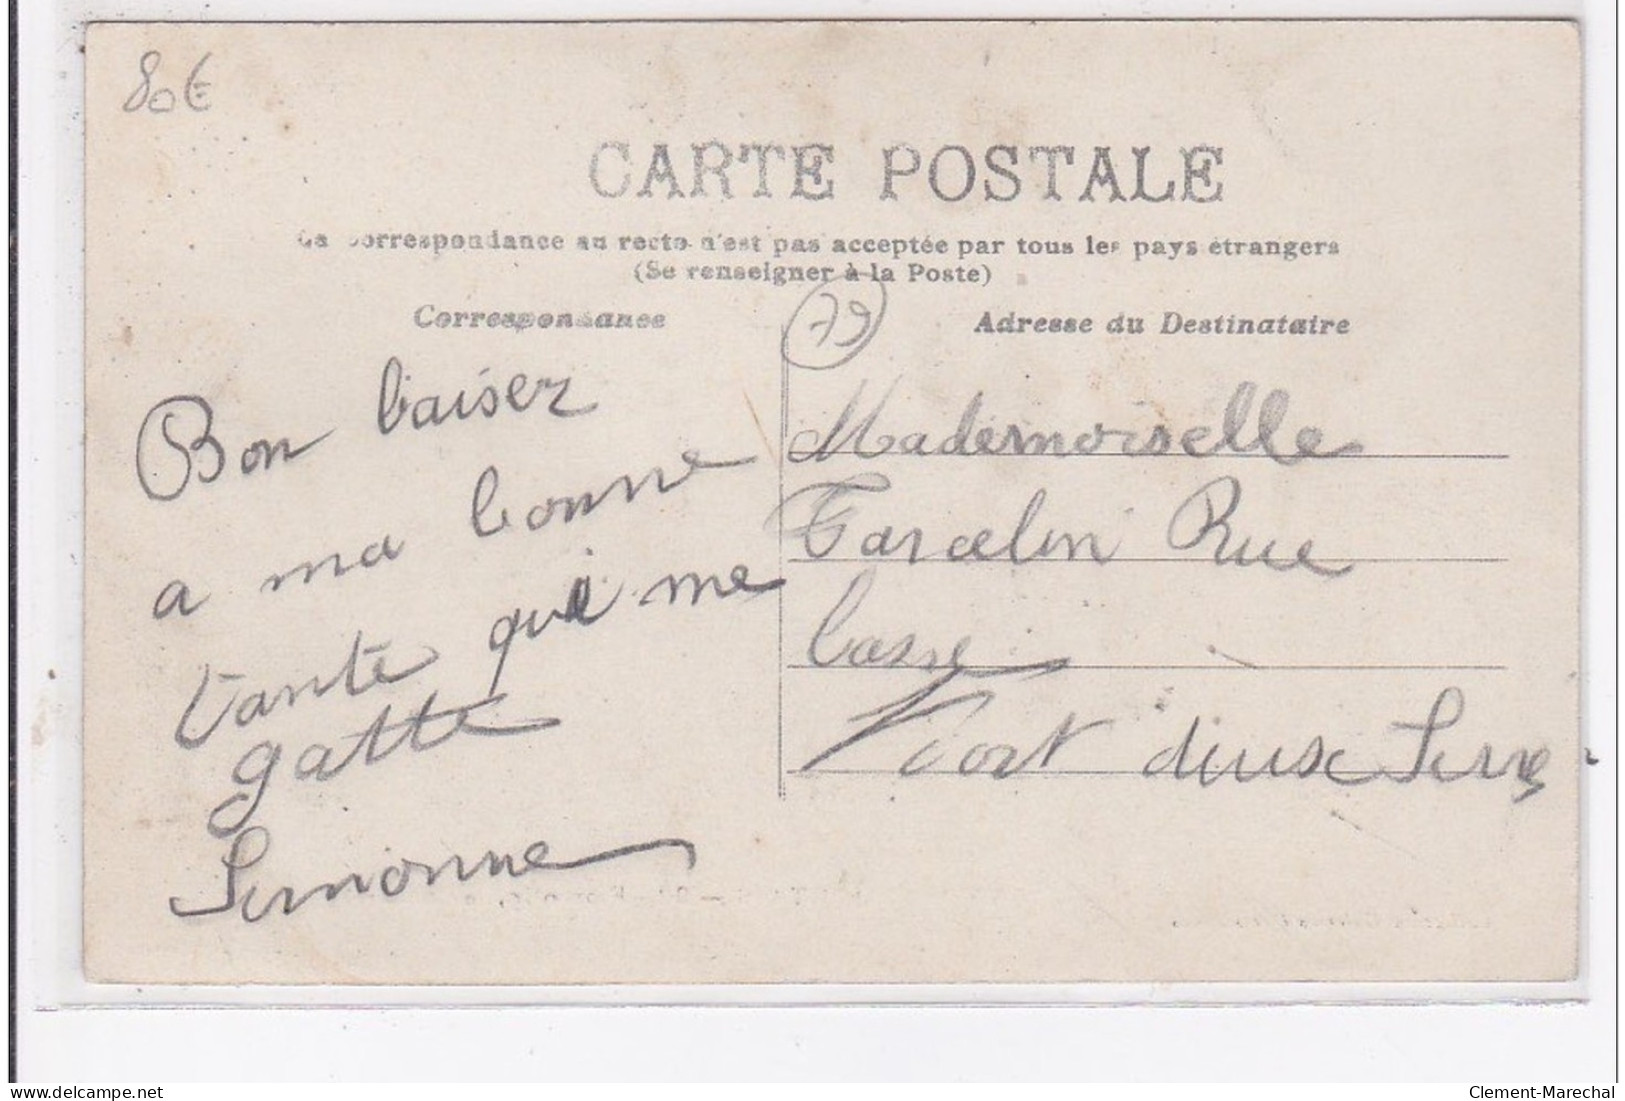 80€
CARTE POSTALE
La Correspondance au recto n'est pas acceptée par tous les pays étrangers
(Se renseigner à la Poste)
Correspondance
Adresse du Destinataire
79
Bon baiser
a ma bonne
tante qui me
gatte
Simonne
Mademoiselle
Rue
basse
Niort deux Sevre
delcampe.net
Clement-Marechal